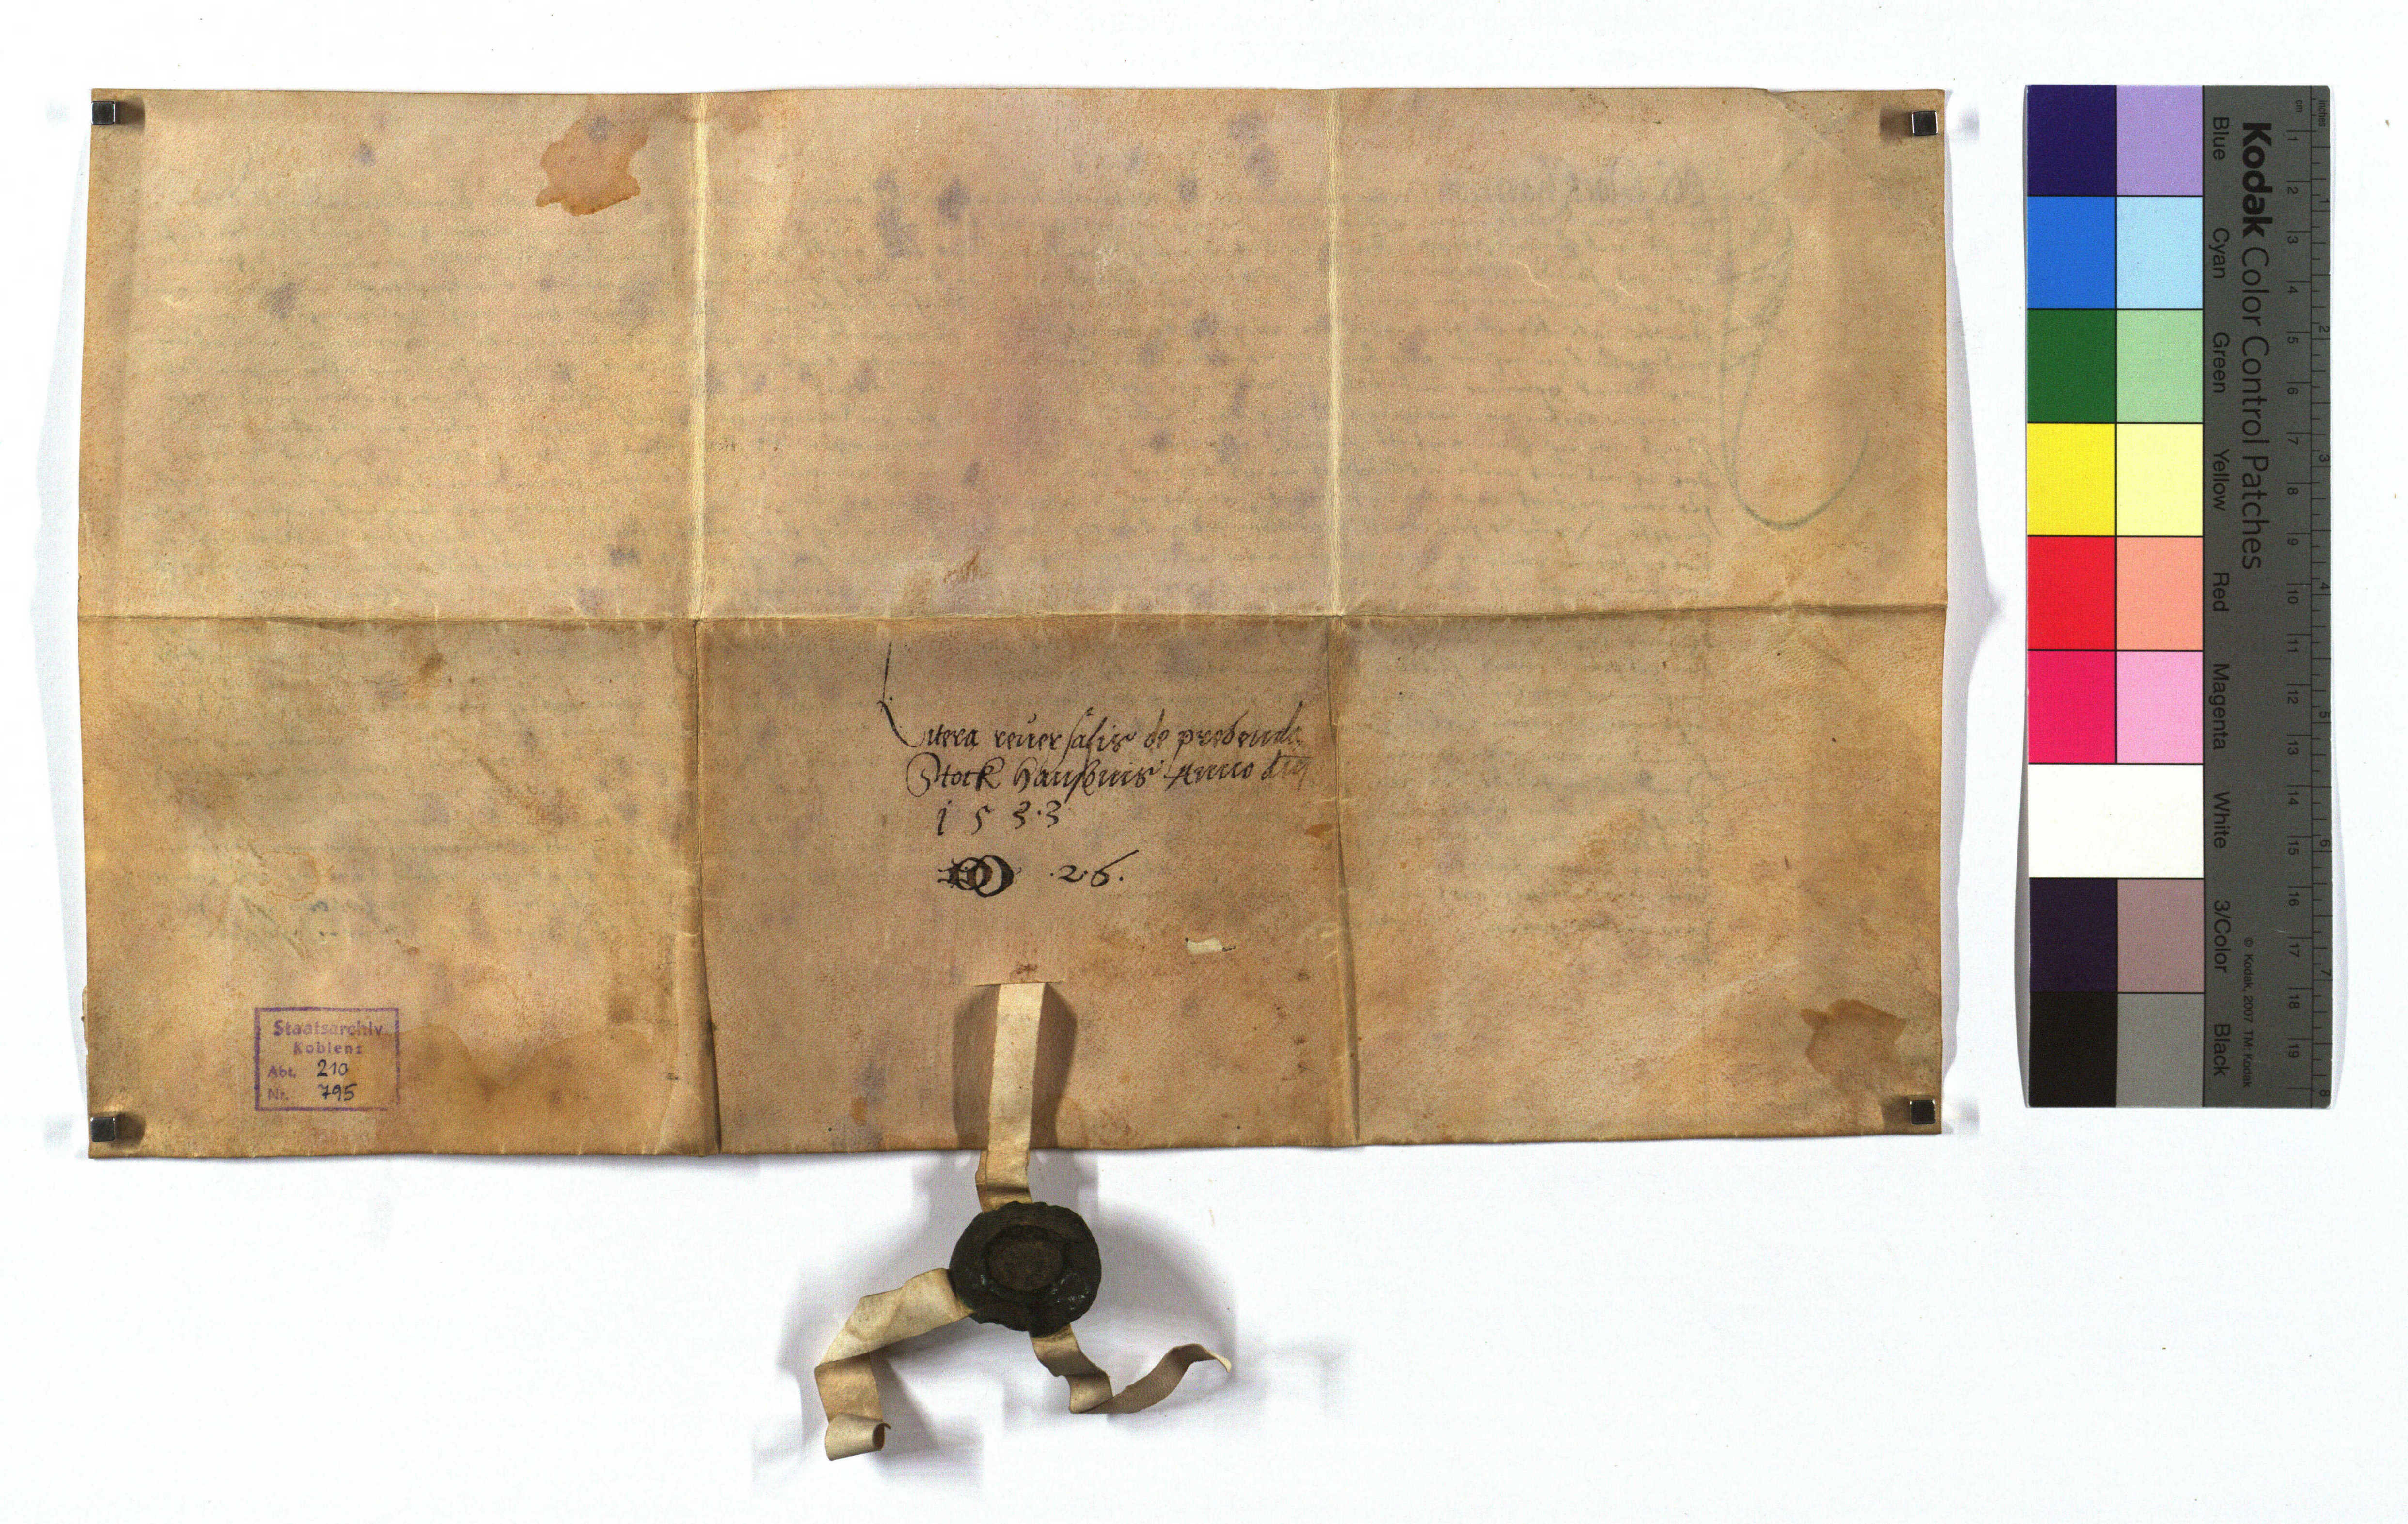 Litera reuersalis de prebenda
Stock hausenis Anno dni
1533
26.
Staatsarchiv
Koblenz
Abt. 210
Nr. 795
Kodak Color Control Patches
Blue Cyan Green Yellow Red Magenta White 3/Color Black
© Kodak, 2007 TM: Kodak
inches 1 2 3 4 5 6 7 8
cm 1 2 3 4 5 6 7 8 9 10 11 12 13 14 15 16 17 18 19